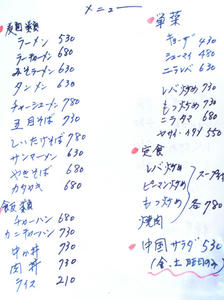 メニュー
ラーメン 530
チャーシューメン 780
タンメン 630
五目そば 730
しいたけそば 780
サンマーメン 630
やきそば 680
カタヤキ 680
飯類
チャーハン 680
カニチャーハン 730
中カ丼 730
肉丼 730
ライス 210
単菜
ギョーザ 430
シューマイ 480
ニラレバ 630
レバ炒め 730
もつ炒め 730
ニラタマ 680
ヤサイイタメ 550
定食
レバ炒め
ピーマン炒め
もつ炒め
焼肉
スープ
各 780
中国サラダ 530
(金、土、日のみ)